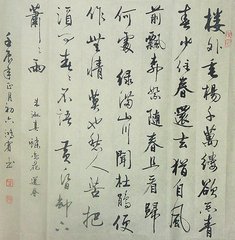 樓外垂楊千萬縷欲系青
春少住春還去猶自風
前飄柳絮隨春且看歸
何處綠滿山川聞杜鵑便
作無情莫也愁人苦把
酒送春春不語黃昏卻下
蕭々雨 朱淑真蝶戀花送春
壬辰年正月初六鴻